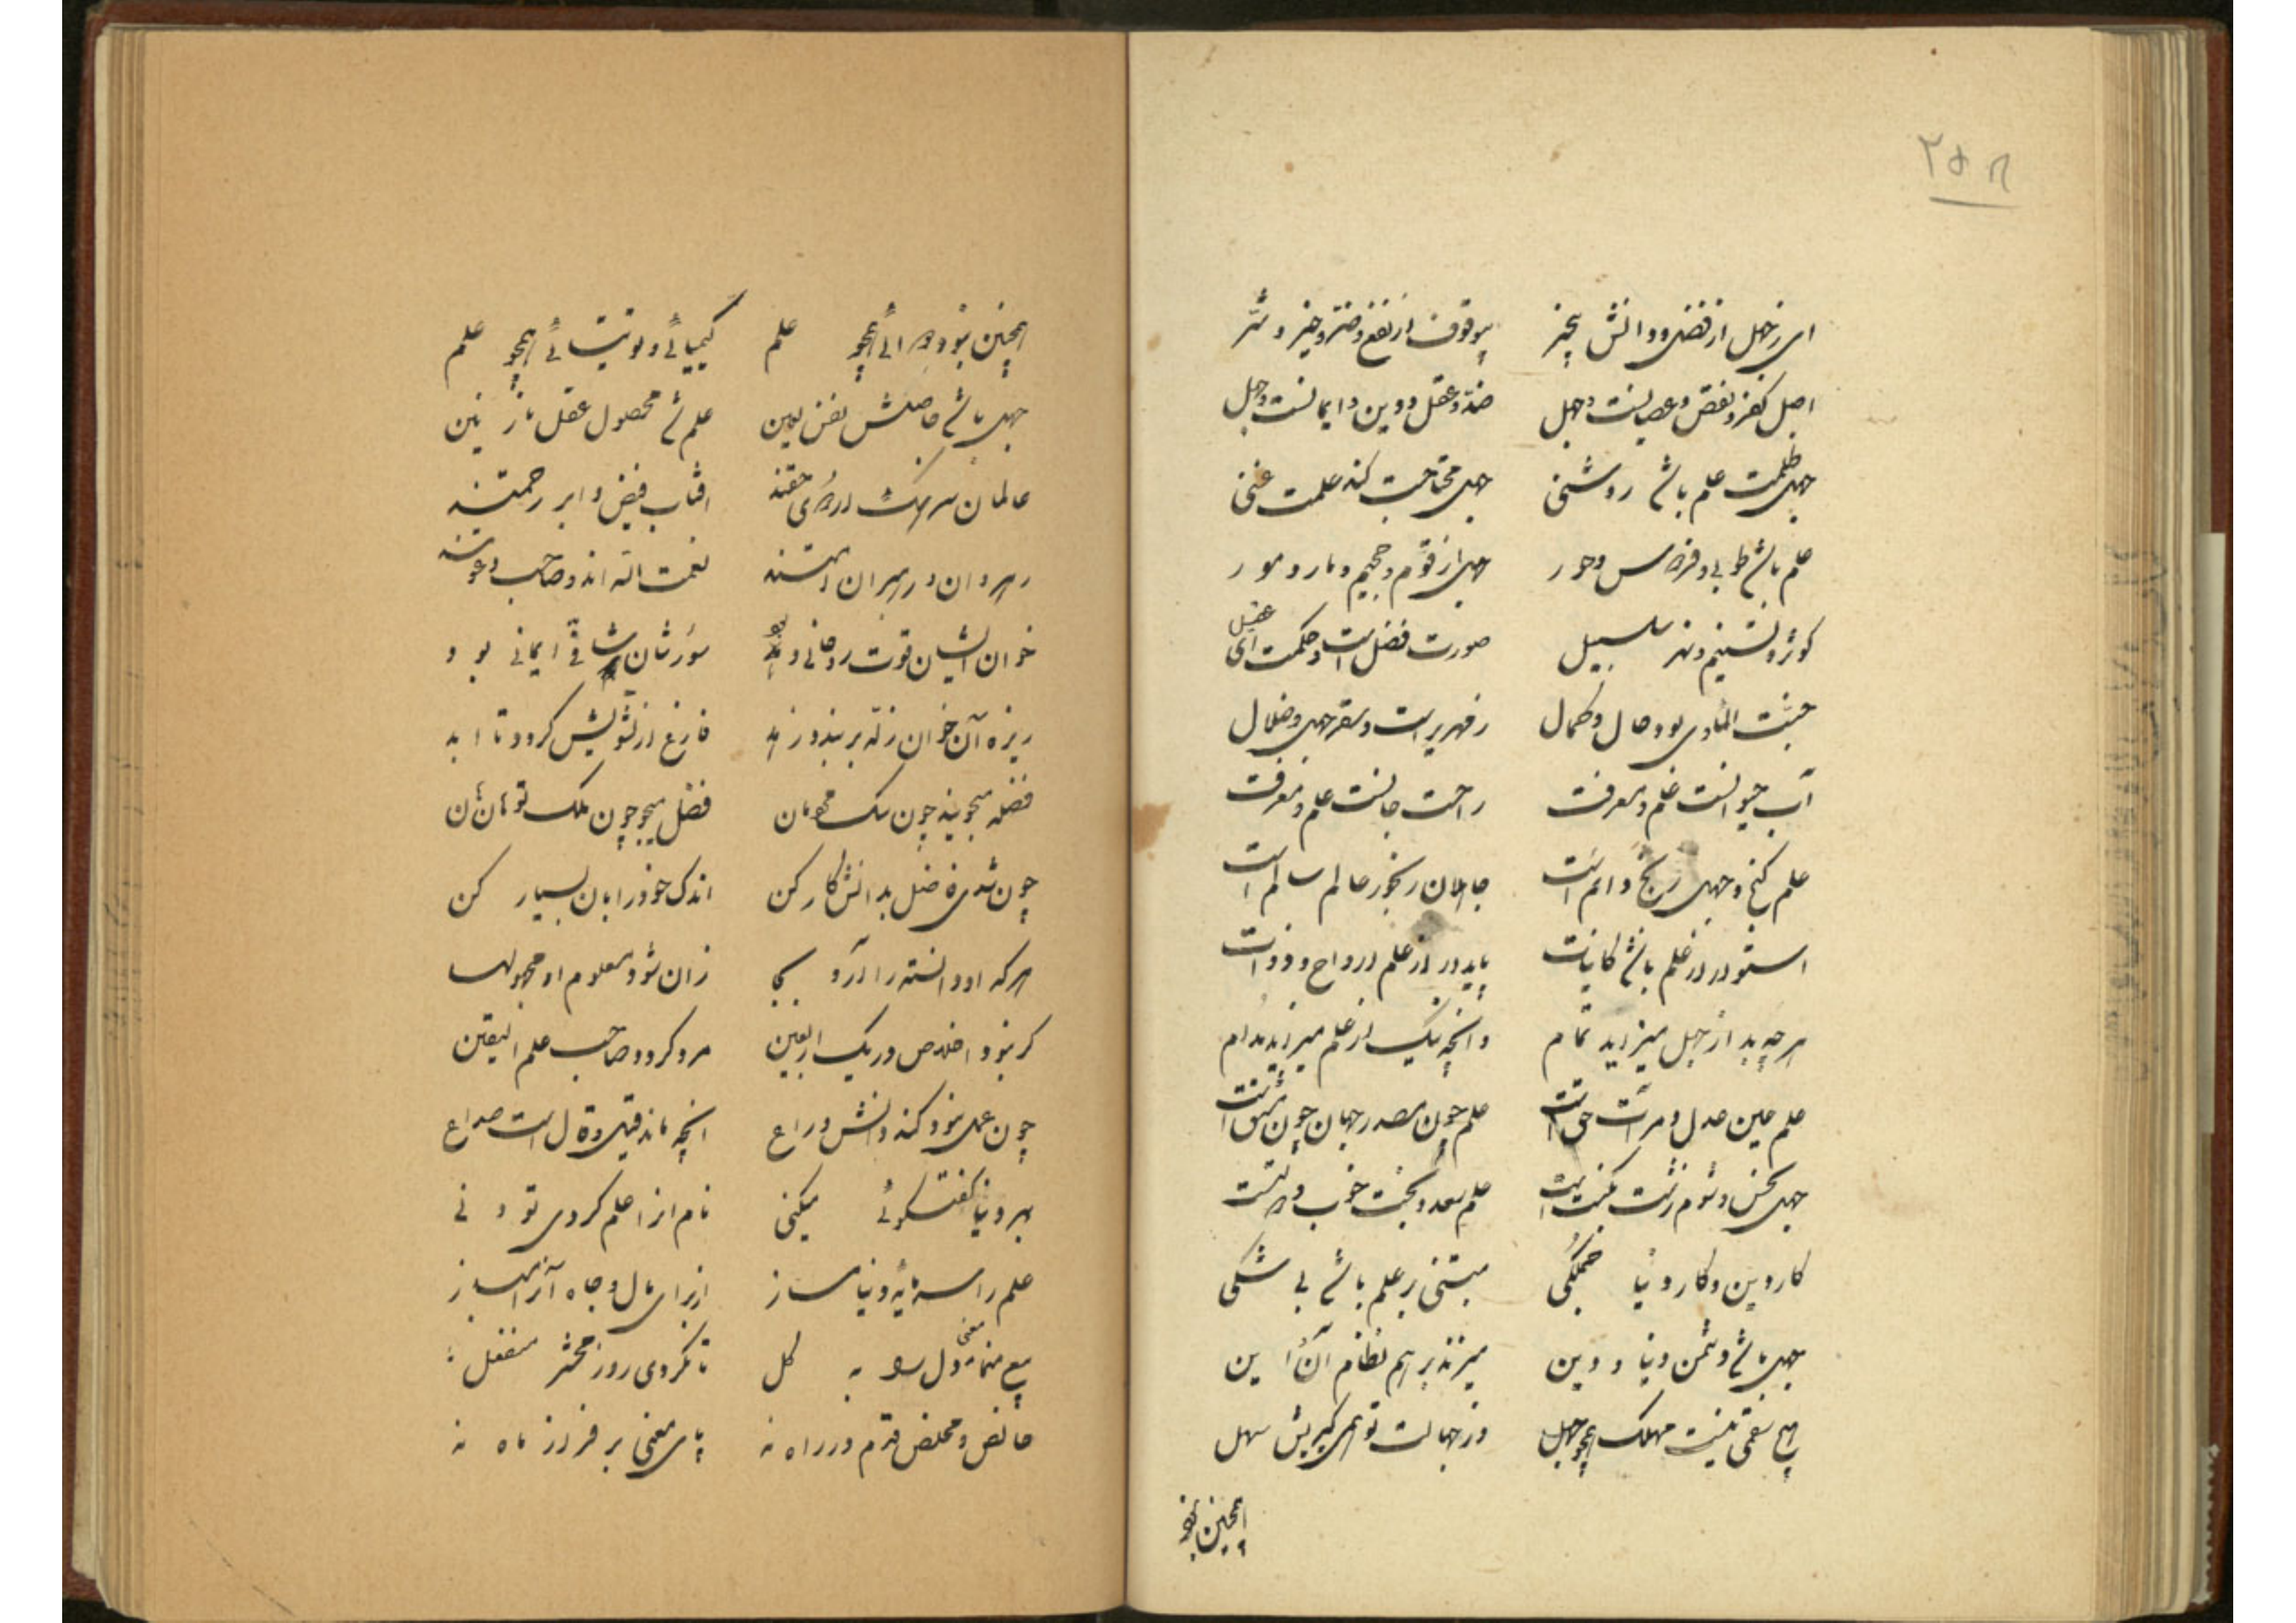 ۲۵۸
ای ز جهل از فضل و دانش بیخبر بیوقوف از نفع و ضر و خیر و شر
اصل کفر و نقص و عصیانست جهل ضد عقل و دین و ایمانست جهل
جهل ظلمت علم باشد روشنی جهل محتاجیت کند علمت غنی
علم باشد طوبی و فردوس و حور جهل زقوم و جحیم و مار و مور
کوثر و تسنیم و نهر سلسبیل صورت فضل است و حکمت ای عقیل
جنت الماوی بود حال و کمال زمهریر است و سقر جهل و ضلال
آب حیوانست علم و معرفت راحت جانست علم و معرفت
علم گنج و جهل رنج دائم است جاهلان رنجور عالم سالم است
استوار از علم باشد کاینات پایدار از علم ارواح و ذوات
هر چه بد از جهل میزاید تمام وانچه نیک از علم میزاید مدام
علم عین عدل و مرآت حق است علم چون مصدر جهان چون مشتق است
جهل نحس و شوم و زشت نکبت است علم سعد و بخت خوب و
کار دین و کار دنیا جملگی مبتنی بر علم باشد بی شکی
جهل باشد دشمن دنیا و دین میزند بر هم نظام آن و این
هیچ سقمی نیست مهلک همچو جهل وز جهالت تو همی گیریش سهل
همچنین نبود
همچنین نبود دوائی همچو علم کیمیائی و توتیائی همچو علم
جهل باشد حاصلش نفس لعین علم شد محصول عقل نازنین
عالمان سرهنگ درگاه حقند آفتاب فیض و ابر رحمتند
رهروان و رهبران امتند نعمت الله اند و صاحب دعوتند
خوان ایشان قوت روحانی بود سورشان شافی ایمانی بود
ریزه آن خوان زله بربند و زند فارغ از تشویش گردد تا ابد
فضله میجویند چون سگ فضل میجو چون ملک تو
چون شدی فاضل بدانش کار کن اندک خود را بآن بسیار کن
هر که او دانسته را آرد بجا زان شود معلوم او مجهولها
گر بود اخلاص در یک اربعین مرد گردد صاحب علم الیقین
چون عمل نبود کند دانش وداع انچه ماند قیل و قال است و صداع
بهر دنیا گفتگوئی میکنی نام آنرا علم کردی تو دنی
علم را سرمایه دنیا مساز از برای مال و جاه آنرا مباز
تا نگردی روز محشر منفعل
خالص و مخلص قدم در راه نه پای معنی بر فراز ماه نه